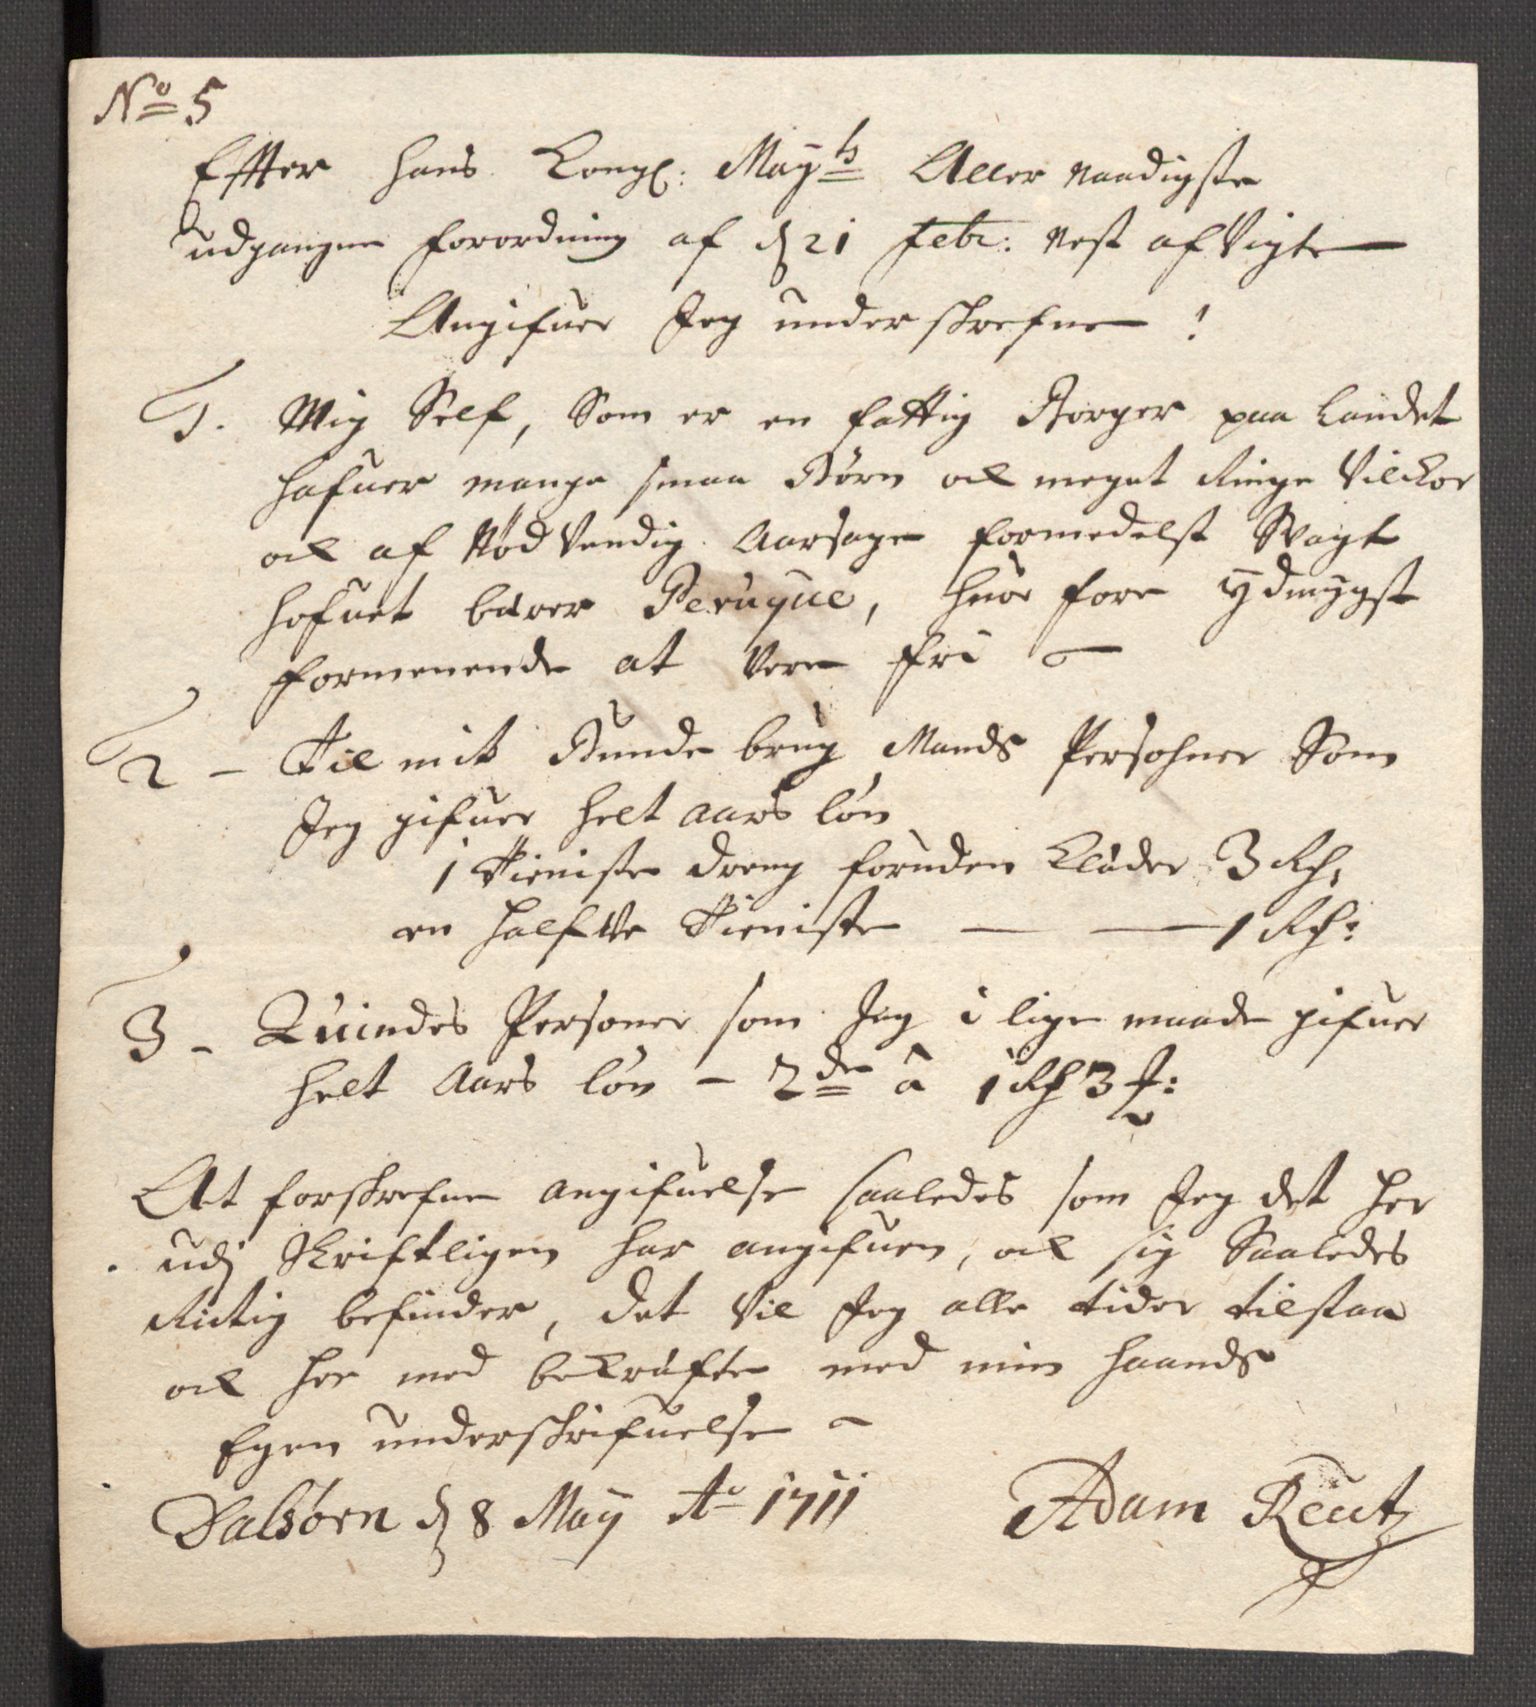 No 5
Effter hans Kongl: Mayts Aller naadigste
udgangne forordning af d 21 Febr: nest afvigte
Angifuer Jeg underskrefne !
1. Mig Self, Som er en fattig Borger paa Landet
hafuer mange smaa Børn och meget Ringe Vilckor
och af Nødvendig Aarsage formedelst Svagt
hofuet bærer Peruque, huor fore ydmygst
formenende at vere fri
2 - Til mit Bunde brug Mands Persohner Som
Jeg gifuer helt aars løn
1 Tieniste dreng foruden Klæder 3 Rh,
en halfve Tieniste — — 1 Rh:
3 - Quindes Personer som Jeg i lige maade gifuer
helt Aars løn - 2de à 1 Rh 3 f:
At forskrefne angifuelse saaledes som Jeg det her
udj skriftligen har angifuen, och sig Saaledes
Rictig befinder, det vil Jeg alle tider tilstaa
och her med bekræfte med min haands
Egen underskrifuelse
Dalsøren d 8 Maÿ Ao 1711 Adam Reutz